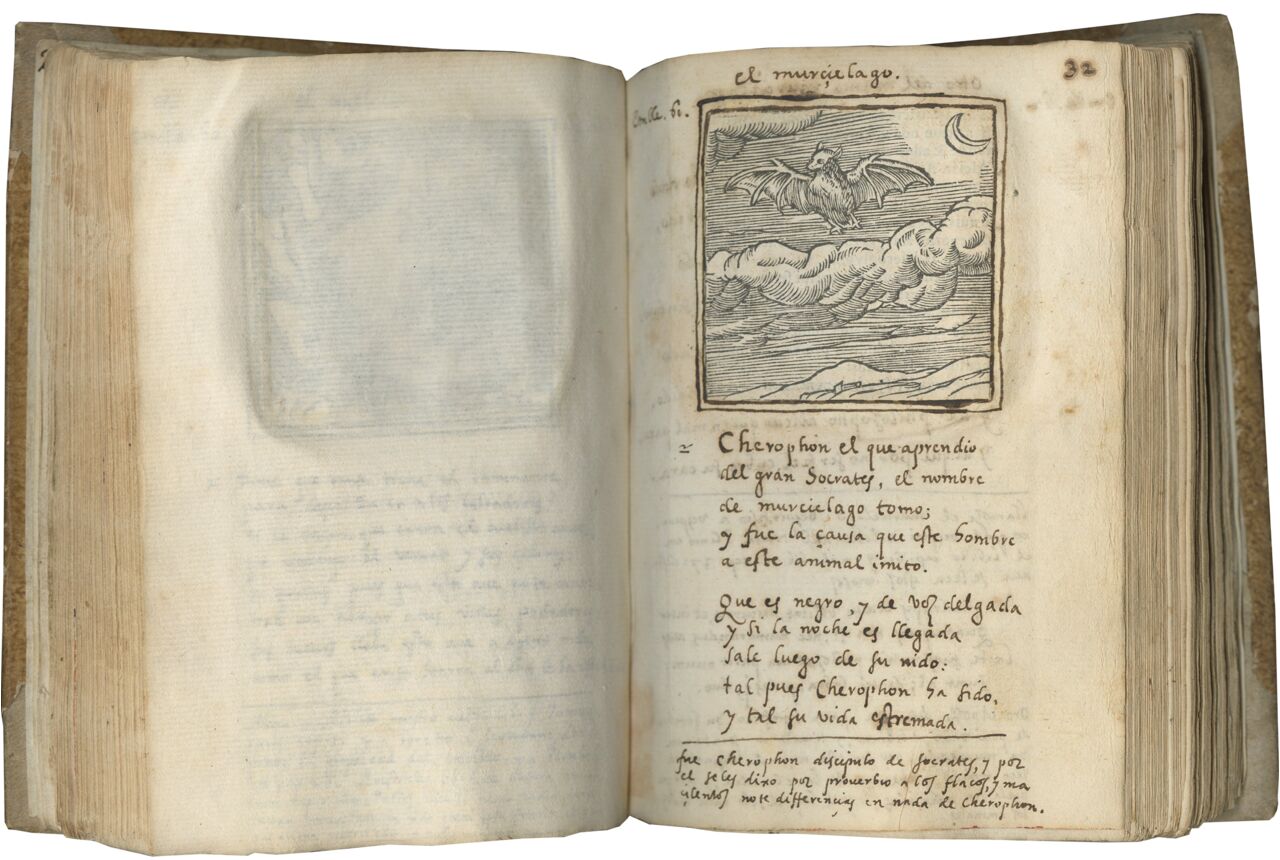 el murçielago.
32
Emble. 61.
2
Cherophon el que aprendio
del gran Socrates, el nombre
de murcielago tomo;
y fue la causa que este hombre
a este animal imito.
Que es negro, y de voz delgada
y si la noche es llegada
sale luego de su nido:
tal pues Cherophon ha sido,
y tal su vida estremada.
fue Cherophon discipulo de Socrates, y por
el se les dixo por proverbio a los flacos, y ma
çilentos no te differençias en nada de Cherophon.